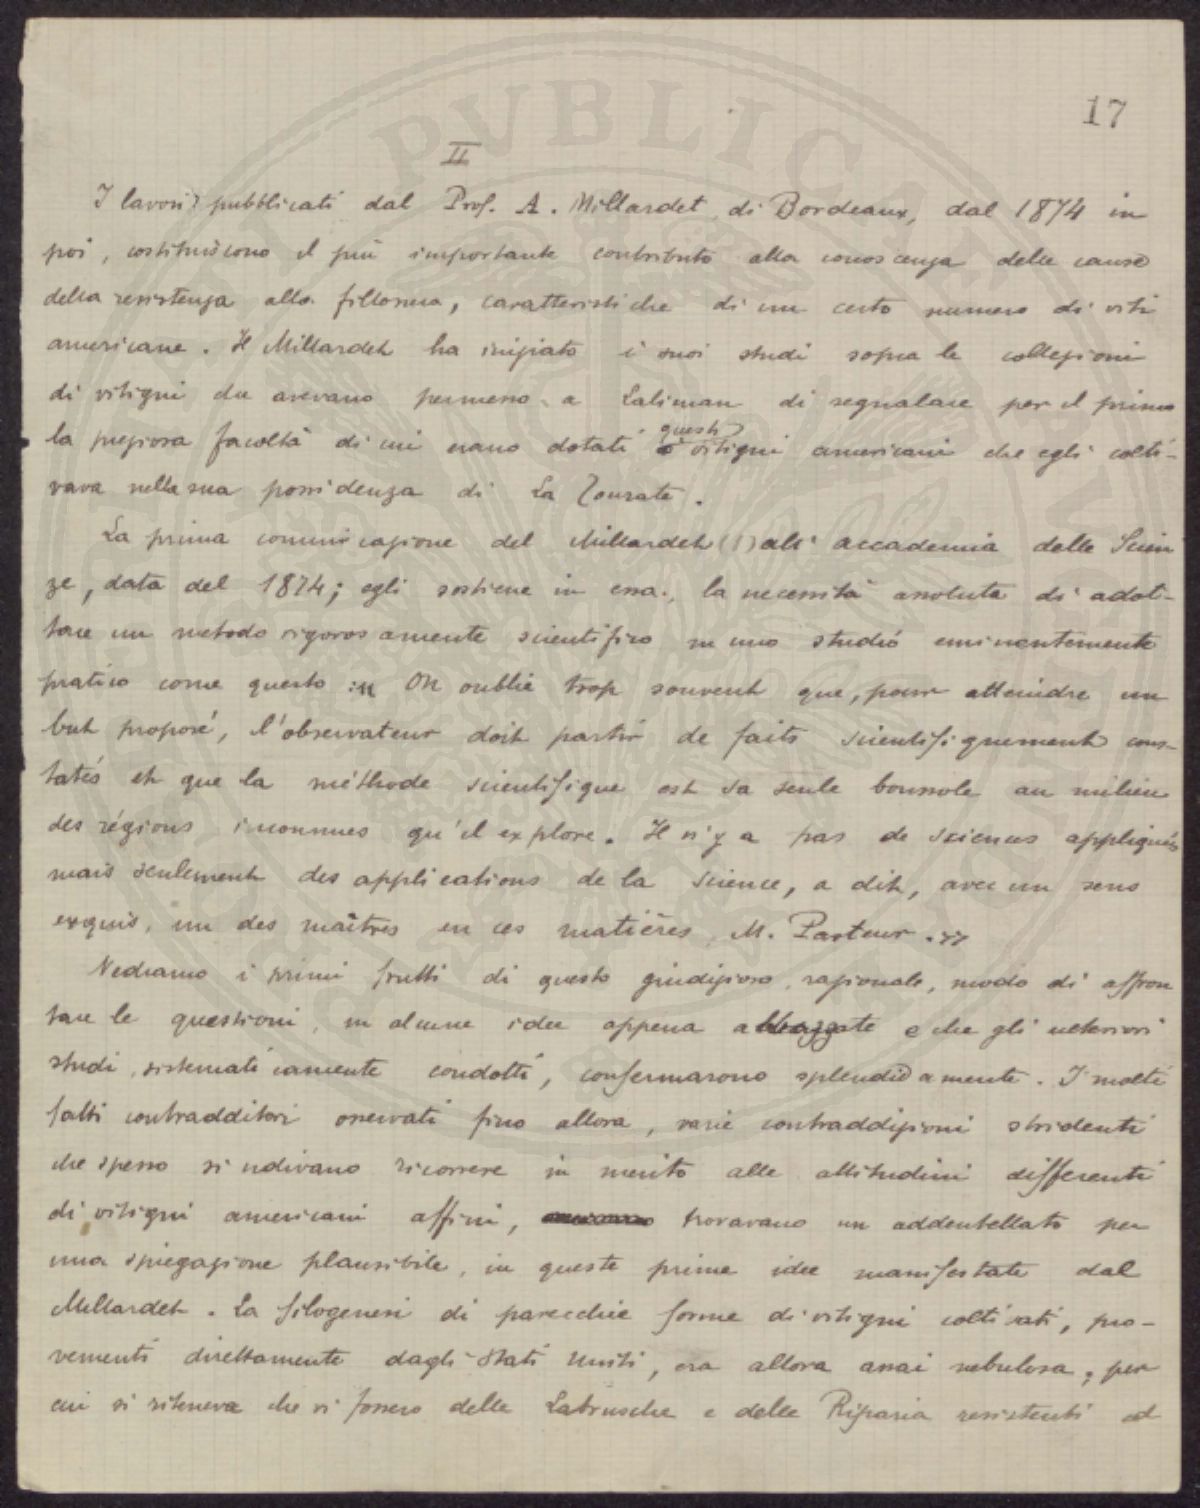 17
II
I lavori pubblicati dal Prof. A. Millardet, di Bordeaux, dal 1874 in
poi, costituiscono il più importante contributo alla conoscenza delle cause
della resistenza alla fillossera, caratteristiche di un certo numero di viti
americane. Il Millardet ha iniziato i suoi studi sopra le collezioni
di vitigni che avevano permesso a Laliman di segnalare per il primo
questi
la preziosa facoltà di cui erano dotati vitigni americani che egli colti-
vava nella sua possidenza di La Tourate.
La prima comunicazione del Millardet (1) all'accademia delle Scien
ze, data del 1874; egli sostiene in essa, la necessità assoluta di adot-
tare un metodo rigorosamente scientifico in uno studio eminentemente
pratico come questo :" On oublie trop souvent que, pour atteindre un
but proposé, l'observateur doit partir de faits scientifiquement cons-
tatés et que la méthode scientifique est sa seule boussole au milieu
des régions inconnues qu'il explore. Il n'y a pas de sciences appliquées
mais seulement des applications de la science, a dit, avec un sens
exquis, un des maîtres en ces matières, M. Pasteur."
Vediamo i primi frutti di questo giudizioso, razionale, modo di affron
tare le questioni, in alcune idee appena abbozzate e che gli ulteriori
studi, sistematicamente condotti, confermarono splendidamente. I molti
fatti contradditori osservati fino allora, varie contraddizioni stridenti
che spesso si udivano ricorrere in merito alle attitudini differenti
di vitigni americani affini, trovavano un addentellato per
una spiegazione plausibile, in queste prime idee manifestate dal
Millardet. La filogenesi di parecchie forme di vitigni coltivati, pro-
venienti direttamente dagli Stati Uniti, era allora assai nebulosa, per
cui si riteneva che vi fossero delle Labrusche e delle Riparia resistenti ed